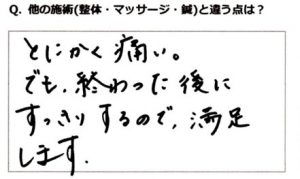 Q. 他の施術(整体・マッサージ・鍼)と違う点は？
とにかく痛い。
でも、終わった後に
すっきりするので、満足
します.